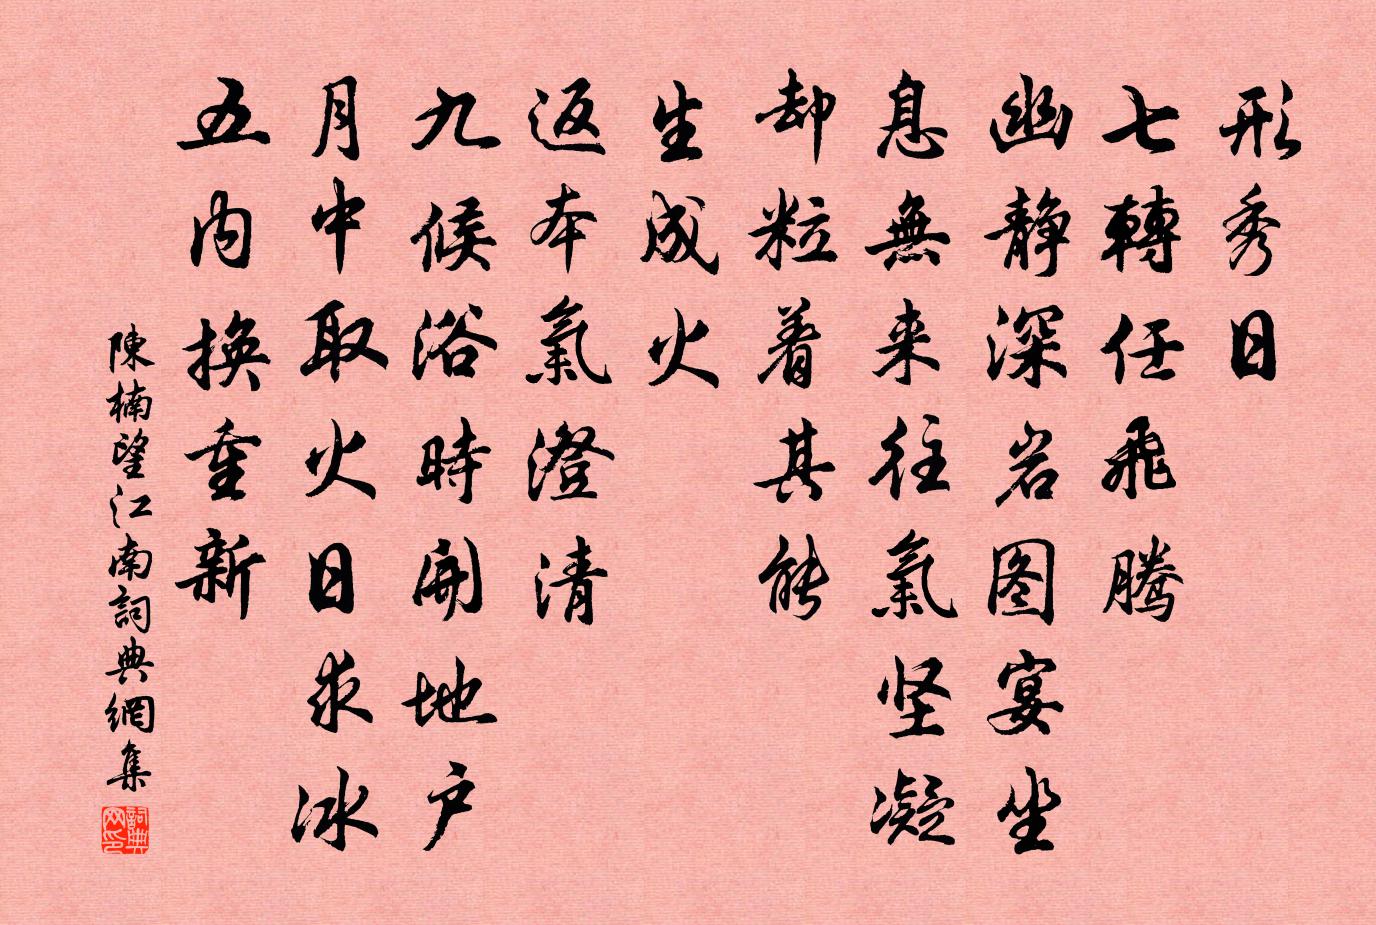 形秀日
七轉任飛騰
幽静深岩图宴坐
息無来往氣坚凝
却粒着其能
生成火
返本氣澄清
九候浴時開地户
月中取火日求冰
五内換重新
陳楠望江南詞典網集
詞典
网印